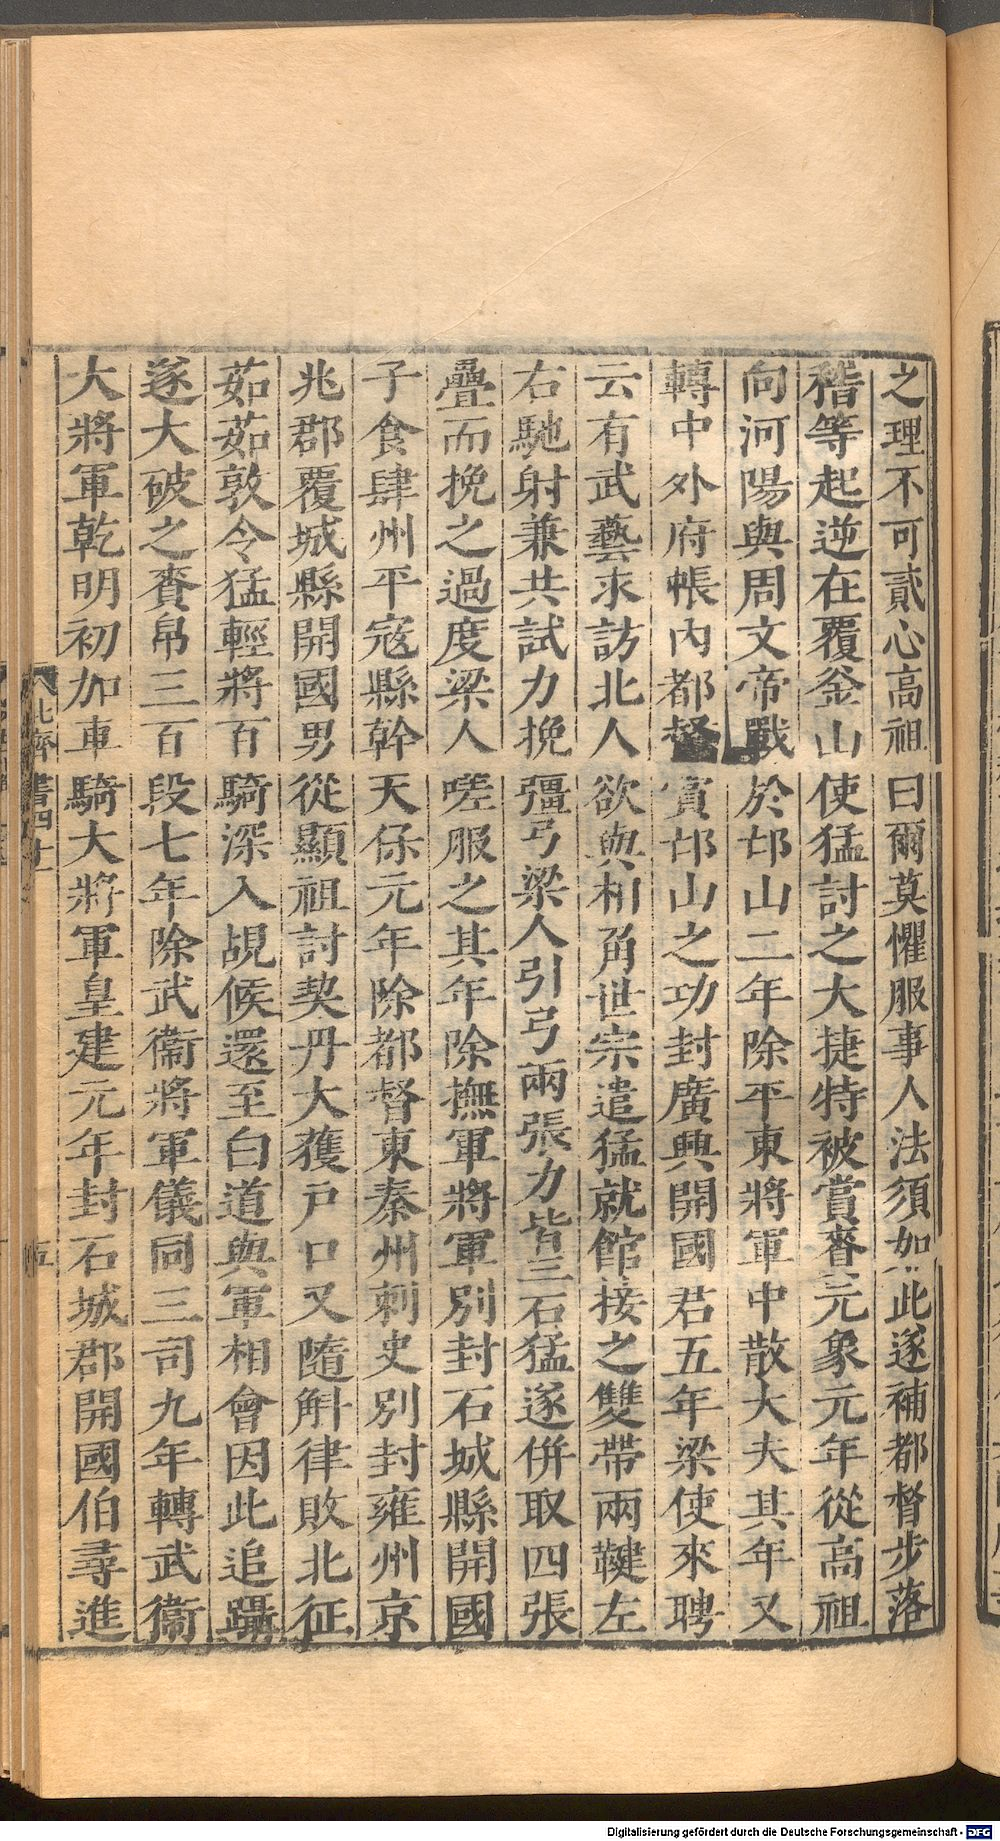 之理不可貳心高祖曰爾莫懼服事人法須如此遂補都督步落
稽等起逆在覆釜山使猛討之大捷特被賞賚元象元年從高祖
向河陽與周文帝戰於邙山二年除平東將軍中散大夫其年又
轉中外府帳內都督賞邙山之功封廣興開國君五年梁使來聘
云有武藝求訪北人欲與相角世宗遣猛就館接之雙帶兩鞬左
右馳射兼共試力挽彊弓梁人引弓兩張力皆三石猛遂併取四張
疊而挽之過度梁人嗟服之其年除撫軍將軍別封石城縣開國
子食肆州平寇縣幹天保元年除都督東秦州刺史別封雍州京
兆郡覆城縣開國男從顯祖討契丹大獲戶口又隨斛律敗北征
茹茹敦令猛輕將百騎深入覘候還至白道與軍相會因此追躡
遂大破之賚帛三百段七年除武衞將軍儀同三司九年轉武衞
大將軍乾明初加車騎大將軍皇建元年封石城郡開國伯尋進
北齊書四十一
五
Digitalisierung gefördert durch die Deutsche Forschungsgemeinschaft - DFG